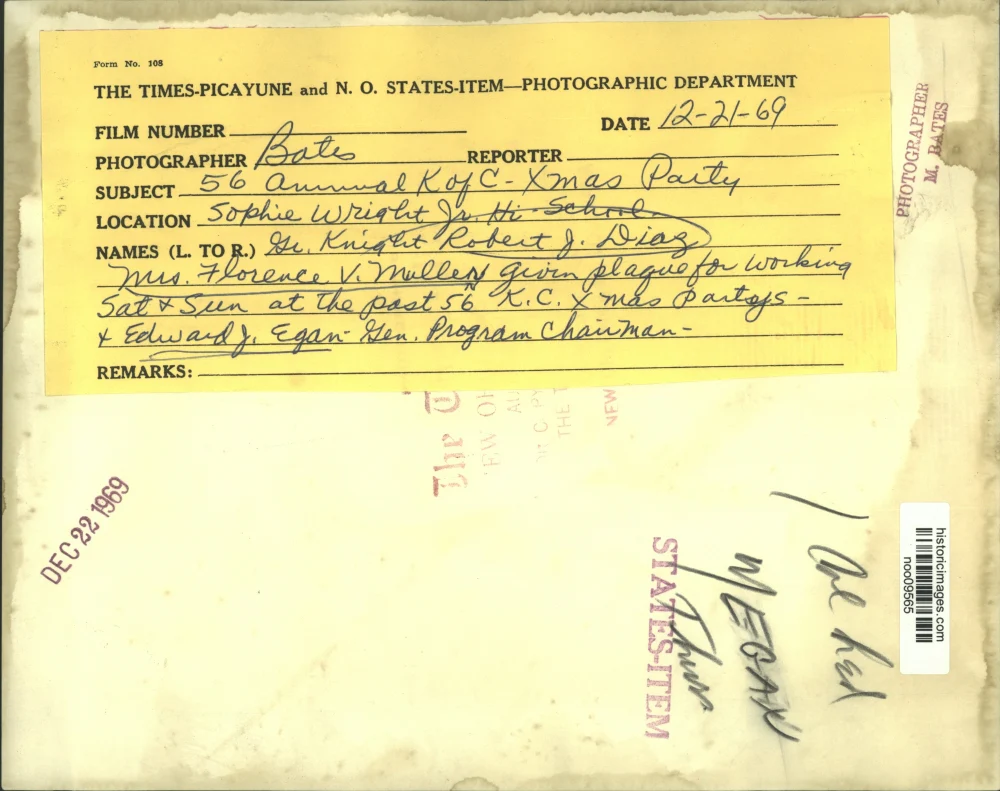 Form No. 108
THE TIMES-PICAYUNE and N. O. STATES-ITEM—PHOTOGRAPHIC DEPARTMENT
FILM NUMBER
DATE 12-21-69
PHOTOGRAPHER Bates REPORTER
SUBJECT 56 Annual K of C - Xmas Party
LOCATION Sophie Wright Jr. Hi School
NAMES (L. TO R.) Gr. Knight Robert J. Diaz
Mrs. Florence V. Mullen given plaque for working
Sat & Sun at the past 56 K.C. Xmas Partys -
& Edward J. Egan - Gen. Program Chairman -
REMARKS:
PHOTOGRAPHER
M. BATES
The
NEW
THE
DEC 22 1969
STATES-ITEM
1 Col
historicimages.com
noo09565